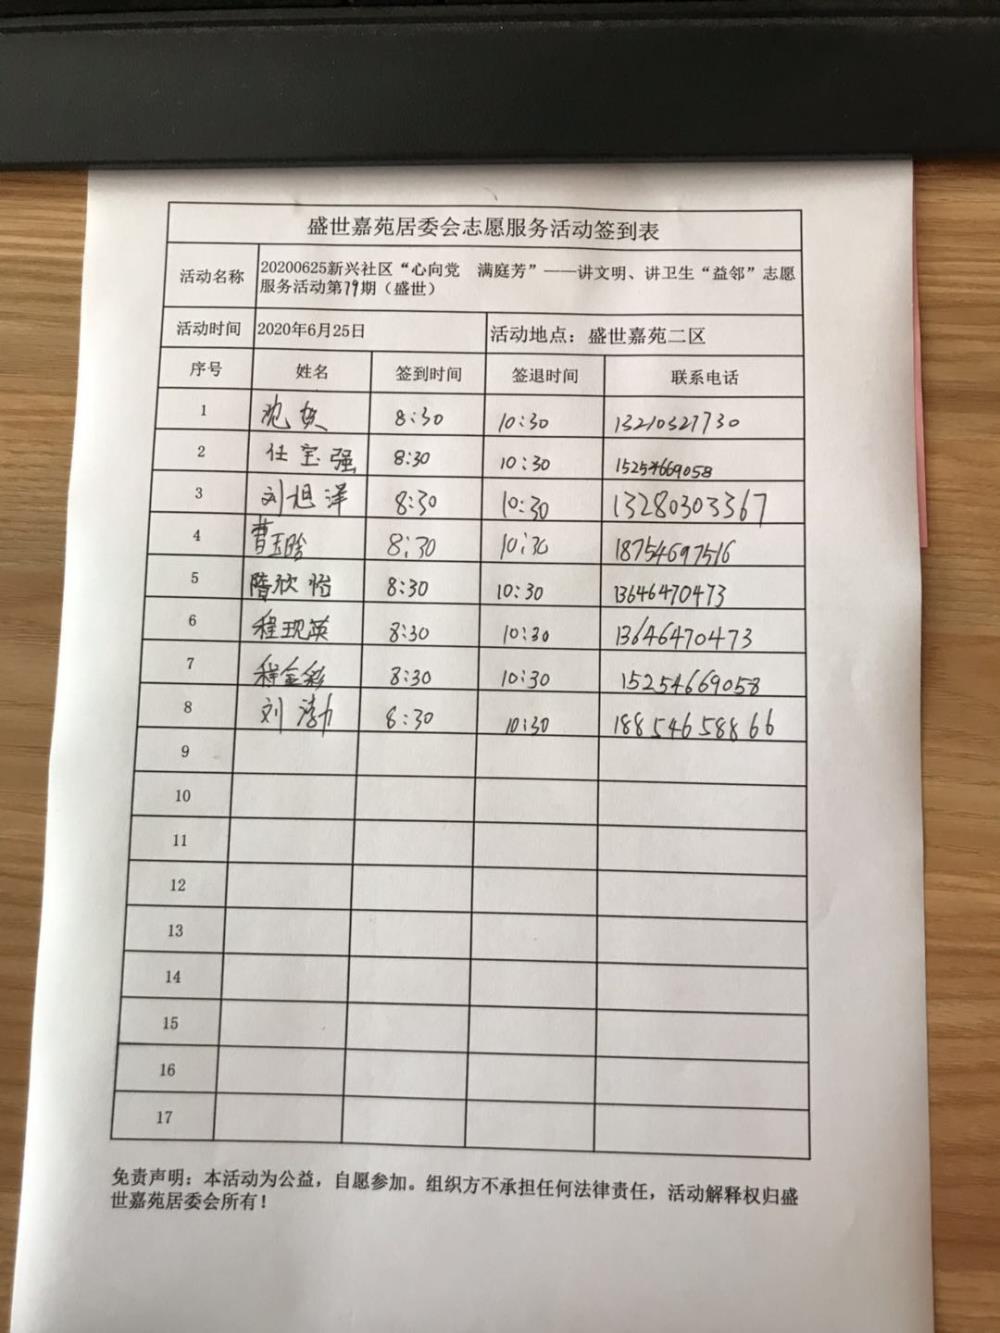 盛世嘉苑居委会志愿服务活动签到表
活动名称 20200625新兴社区“心向党 满庭芳”——讲文明、讲卫生“益邻”志愿
服务活动第79期（盛世）
活动时间 2020年6月25日 活动地点：盛世嘉苑二区
序号 姓名 签到时间 签退时间 联系电话
1 8:30 10:30 13210327730
2 任宝强 8:30 10:30 15254669058
3 刘旭泽 8:30 10:30 13280303367
4 曹玉晗 8:30 10:30 18754697516
5 隋欣怡 8:30 10:30 13646470473
6 程现英 8:30 10:30 13646470473
7 程金彩 8:30 10:30 15254669058
8 刘渤 8:30 10:30 18854658866
9
10
11
12
13
14
15
16
17
免责声明：本活动为公益，自愿参加。组织方不承担任何法律责任，活动解释权归盛
世嘉苑居委会所有！